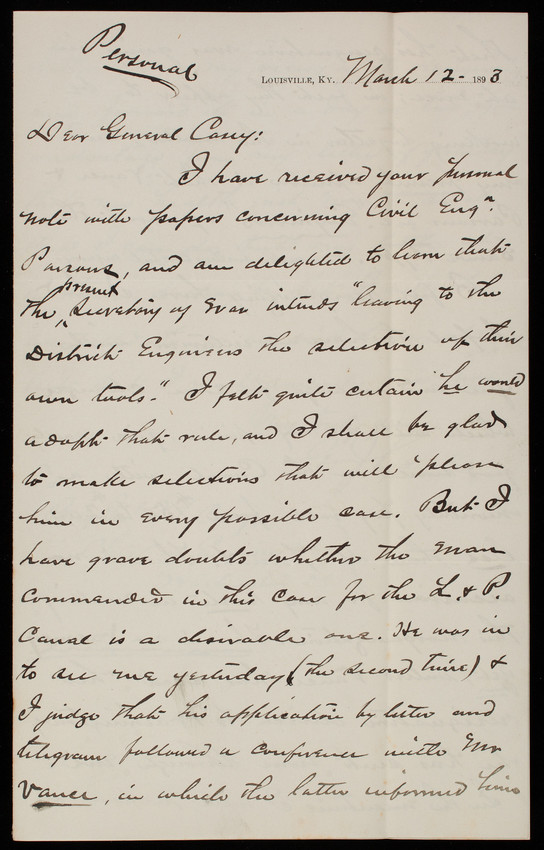 Personal
Louisville, Ky. March 12- 1893
Dear General Casey:
I have received your personal
note with papers concerning Civil Engr.
Parsons, and am delighted to learn that
the present Secretary of War intends "leaving to the
District Engineers the selection of their
own tools." I felt quite certain he would
adopt that rule, and I shall be glad
to make selections that will please
him in every possible case. But I
have grave doubts whether the man
commended in this case for the L. & P.
Canal is a desirable one. He was in
to see me yesterday (the second time) &
I judge that his application by letter and
telegram followed a conference with Mr
Vance, in which the latter informed him